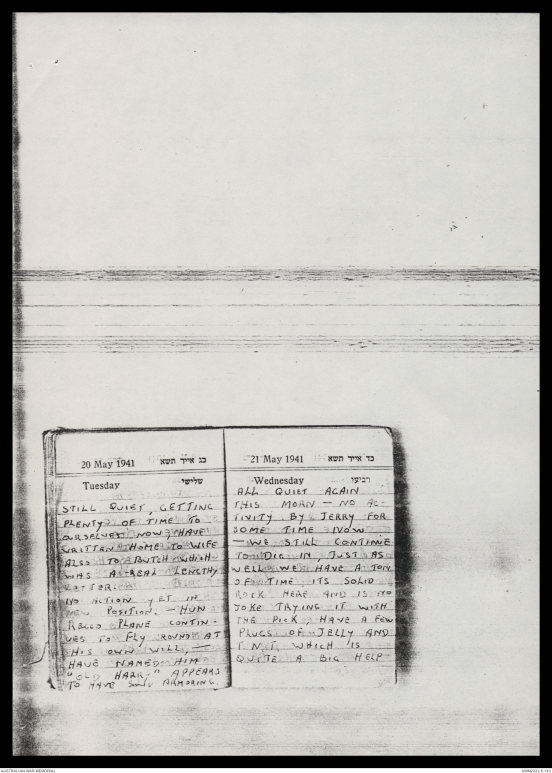 20 May 1941 כג אייר תשא
Tuesday שלישי
STILL QUIET, GETTING
PLENTY OF TIME TO
OURSELVES NOW, HAVE
WRITTEN HOME TO WIFE
ALSO TO BUTCH WHICH
WAS A REAL LENGTHY
LETTER.
NO ACTION YET IN
NEW POSITION. — HUN
RECCO PLANE CONTIN-
UES TO FLY ROUND AT
HIS OWN WILL, —
HAVE NAMED HIM
"OLD HARRY" APPEARS
TO HAVE SOME ARMORING.
21 May 1941 כד אייר תשא
Wednesday רביעי
ALL QUIET AGAIN
THIS MORN — NO AC-
TIVITY BY JERRY FOR
SOME TIME NOW
— WE STILL CONTINUE
TO DIG IN, JUST AS
WELL WE HAVE A TON
OF TIME ITS SOLID
ROCK HERE AND IS NO
JOKE TRYING IT WITH
THE PICK, HAVE A FEW
PLUGS OF JELLY AND
T.N.T, WHICH IS
QUITE A BIG HELP
AUSTRALIAN WAR MEMORIAL